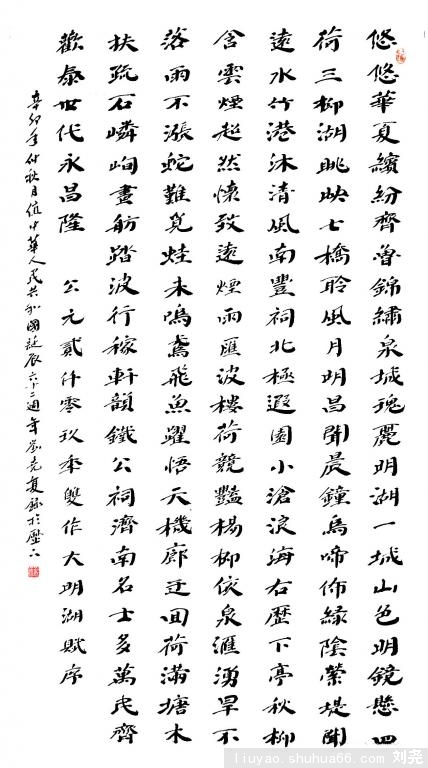 悠悠華夏繽紛齊魯錦繡泉城瑰麗明湖一城山色明鏡懸四
荷三柳湖眺映七橋聆風月明昌聞晨鐘烏啼佈綠陰縈堤聞
遠水竹港沐清風南豐祠北極遐園小滄浪海右歷下亭秋柳
含雲煙超然懷致遠煙雨匯波樓荷競豔楊柳依泉滙湧旱不
落雨不漲蛇難覓蛙未鳴鳶飛魚躍悟天機廊迂回荷滿塘木
扶疏石嶙峋畫舫踏波行稼軒韻鐵公祠濟南名士多萬民齊
歡泰世代永昌隆 公元貳仟零玖年雙作大明湖賦序
辛卯年仲秋月值中華人民共和國誕辰六十二週年劉堯夏錄於歷下
liuyao.shuhua66.com 刘尧